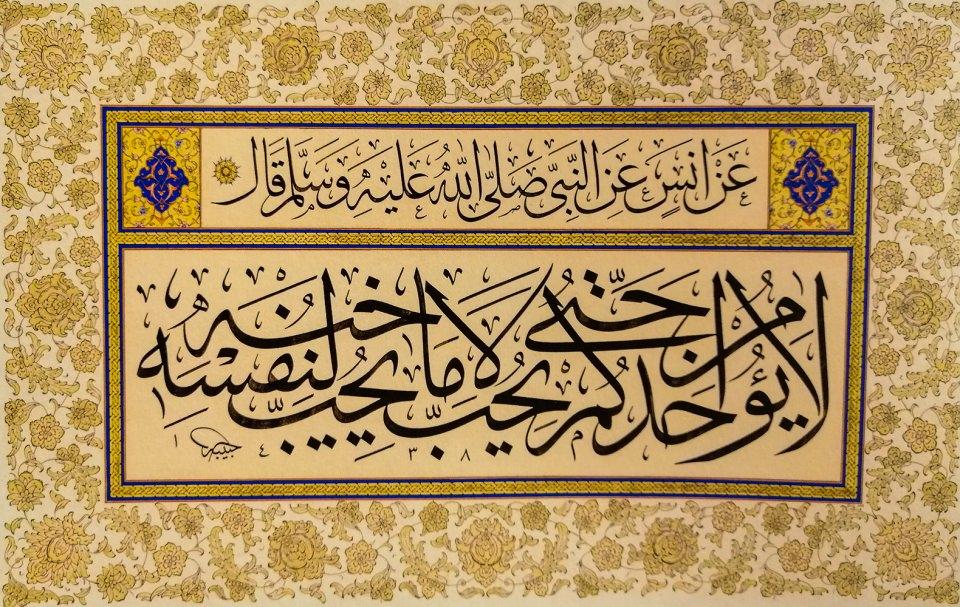 عن انس عن النبي صلى الله عليه وسلم قال
لا يؤمن احدكم حتى يحب لاخيه ما يحب لنفسه
حبيبه ١٤٣٨